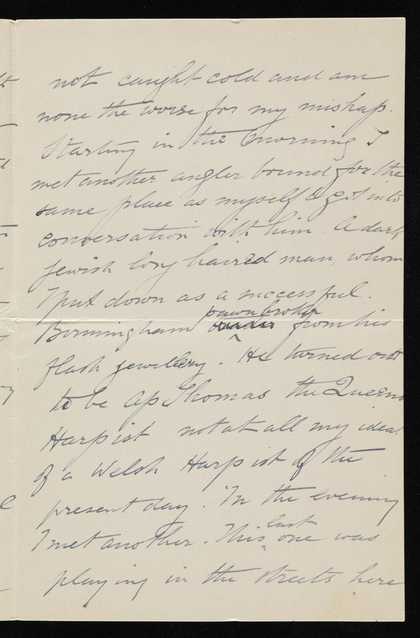 not caught cold and am
none the worse for my mishap.
Starting in the morning I
met another angler bound for the
same place as myself & got into
conversation with him. A dark
Jewish long haired man whom
I put down as a successful
Birmingham pawnbroker from his
flash jewelery. He turned out
to be Ap Thomas the Queens
Harpist not at all my idea
of a Welsh Harpist of the
present day. In the evening
I met another. This last one was
playing in the streets here